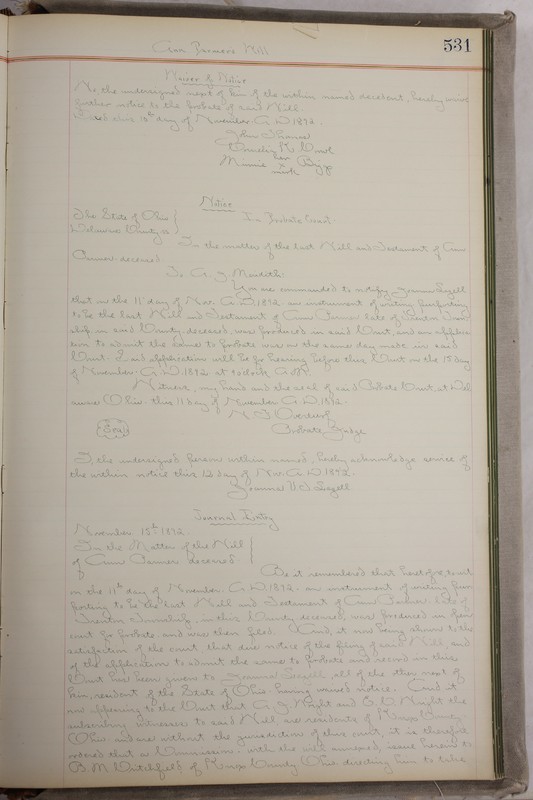 531
Ann Parmers Will
Waiver of Notice
We the undersigned next of kin of the within named decedent, hereby waive
further notice to the probate of said Will.
this 10th day of November A.D. 1892.
John
her
Minnie x
mark
Notice
The State of Ohio
Delaware County ss
In Probate Court.
In the matter of the last Will and Testament of Ann
Parmer deceased
To A. J. Meredith
You are commanded to notify Joanna
that on the 11 day of Nov. A.D. 1892 an instrument of writing purporting
to be the last Will and Testament of Ann Parmer late of Trenton Town
ship in said County, deceased, was produced in said Court, and an applica
tion to admit the same to probate was on the same day made in said
Court. Said application will be for hearing before this Court on the 15 day
of November A.D. 1892 at 9 o'clock A.M.
Witness, my hand and the seal of said Probate Court, at Del
aware Ohio this 11 day of November A.D. 1892
Seal
Probate Judge
I, the undersigned person within named, hereby acknowledge service of
the within notice this 12 day of Nov. A.D. 1892
Joanna
Journal Entry
November 15th 1892
In the Matter of the Will
of Ann Parmer deceased
Be it remembered that heretofore to wit
on the 11th day of November A.D. 1892 an instrument of writing pur
porting to be the last Will and Testament of Ann Parmer late of
Trenton Township, in this County deceased, was produced in open
court for probate and was then filed. And, it now being shown to the
satisfaction of the court that due notice of the filing of said Will, and
of the application to admit the same to probate and record in this
Court has been given to Joanna all of the other next of
kin, resident of the State of Ohio having waived notice. And it
now appearing to the Court that A. J. Wright and E. V. Wright the
subscribing witnesses to said Will are residents of Knox County
Ohio and are without the jurisdiction of this court, it is therefore
ordered that a Commission with the will annexed, issue herein to
B. M. Critchfield of Knox County Ohio directing him to take